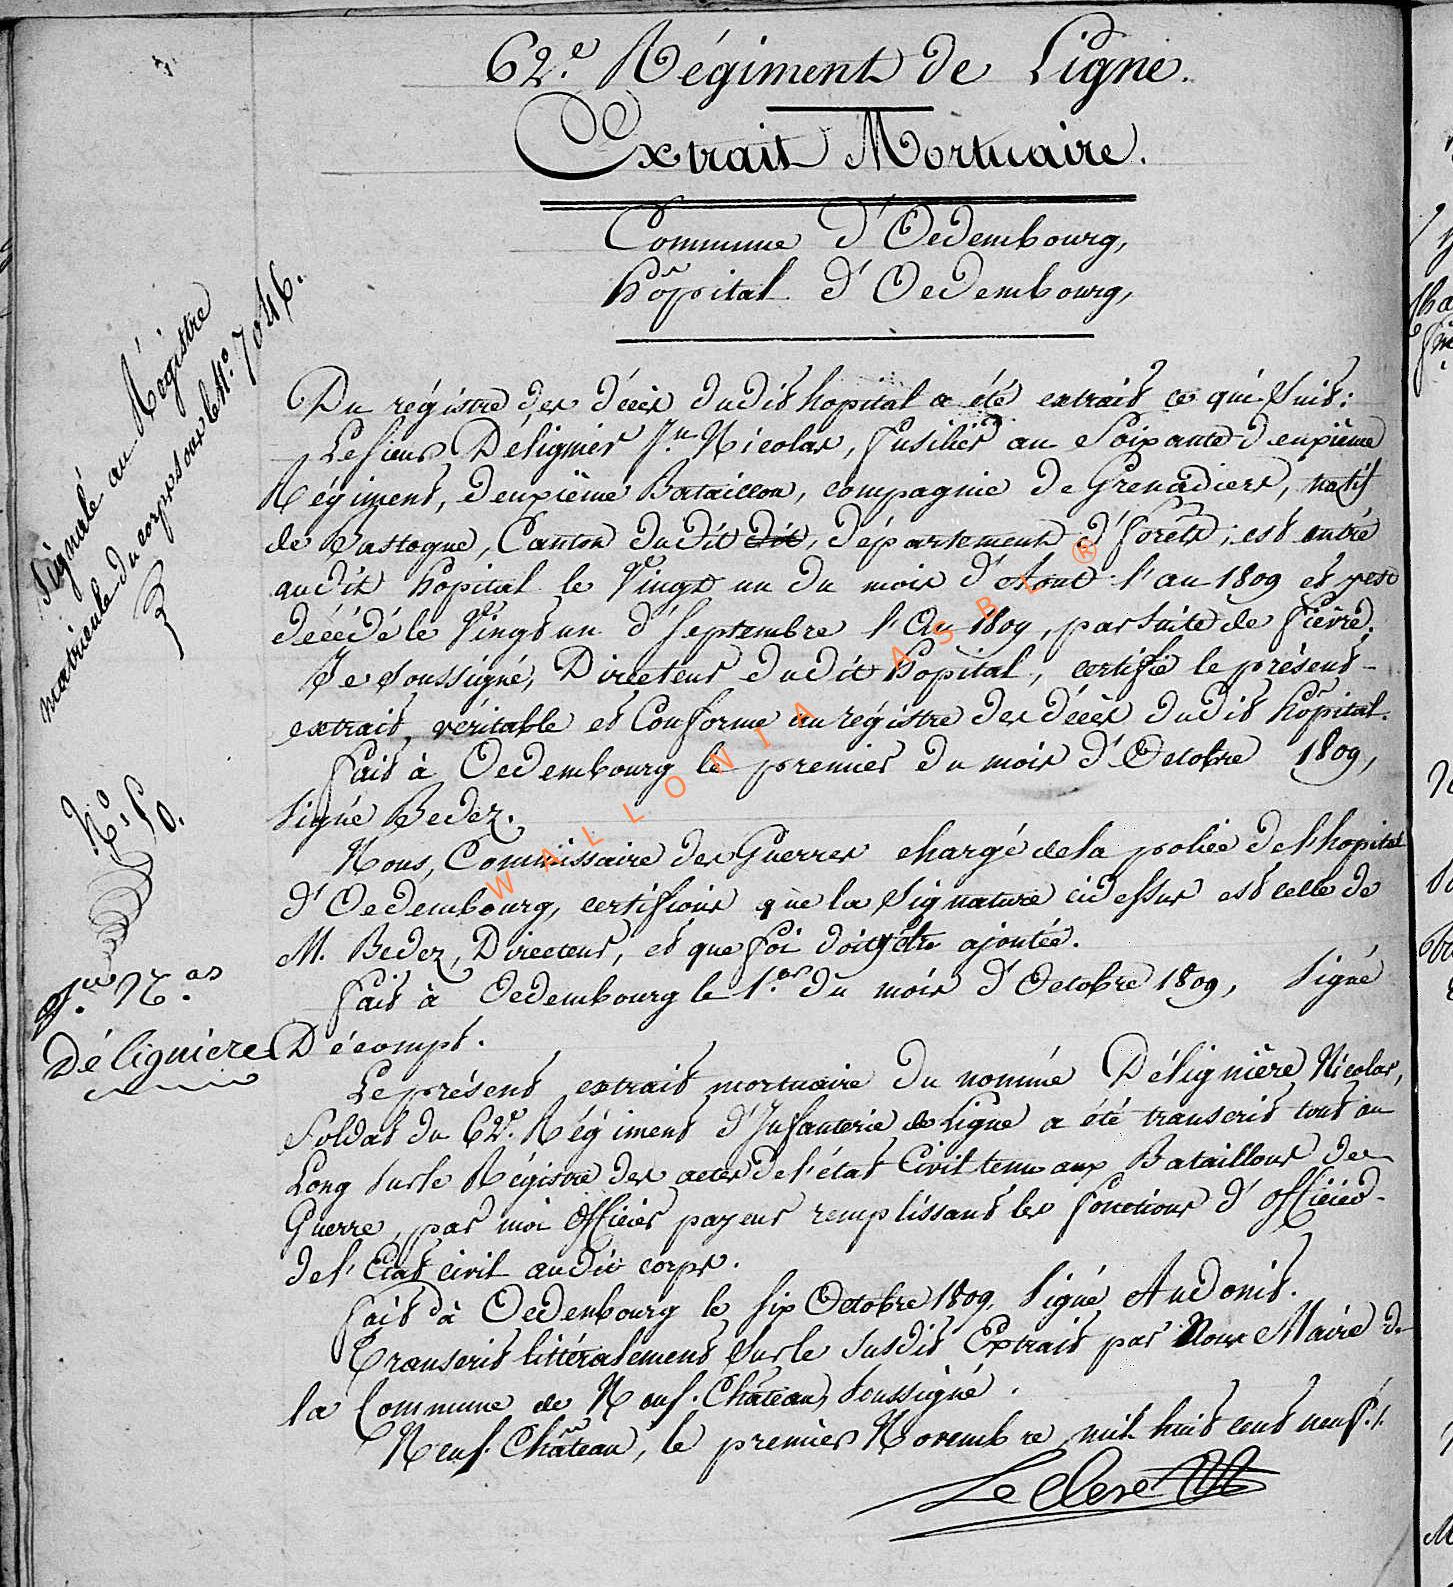 62.e Régiment de Ligne.
Extrait Mortuaire.
Commune d'Oedembourg,
hôpital d'Oedembourg,
Signalé au Régistre
matricule du corps sous le No. 7046.
Du régistre des décès dudit hopital a été extrait ce qui suit:
Le sieur Délignier Jn. Nicolas, fusilier au Soixante deuxième
Régiment, deuxième Bataillon, compagnie de Grenadiers, natif
de Bastogne, Canton dudit dit, département d'forêts, est entré
audit hopital le Vingt un du mois d'Aout l'an 1809 et y est
décédé le Vingt un d'Septembre l'An 1809, par suite de fièvre.
Je soussigné, Directeur dudit hopital, certifie le présent
extrait véritable et Conforme au régistre des décès dudit hôpital.
fait à Oedembourg le premier du mois d'Octobre 1809,
Signé Bedez.
Nous, Commissaire des Guerres chargé de la police de l'hopital
d'Oedembourg, certifions que la Signature ci dessus est celle de
M. Bedez, Directeur, et que foi doit y être ajoutée.
fait à Oedembourg le 1.er du mois d'Octobre 1809, Signé
Décompt.
No. 50.
Jn. N.as
Délignière
Le présent extrait mortuaire du nommé Délignière Nicolas,
Soldat du 62e. Régiment d'Infanterie de Ligne a été transcrit tout au
Long sur le Régistre des actes de l'état Civil tenu aux Bataillons de
Guerre, par moi officier payeur remplissant les fonctions d'officier
de l'Etat civil audit corps.
fait à Oedenbourg le six Octobre 1809, Signé Audonis.
Transcrit littéralement sur le susdit Extrait par Nous Maire de
la Commune de Neuf-Château, soussigné.
Neuf-Château, le premier Novembre mil huit cent neuf./.
Leclerc
WALLONIA ASBL ®